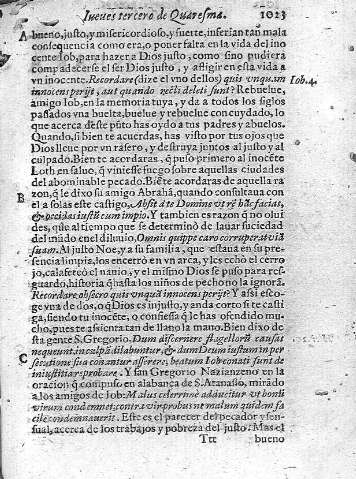 Iueues tercero de Quaresma. 1023
A bueno, justo, y misericordioso, y fuerte, inferian tan mala
consequencia como era, o poner falta en la vida del ino
cente Iob, para hazer a Dios justo, como sino pudiera
compadecerse el ser Dios justo, y afligir en esta vida a
vn inocente. Recordare (dize el vno dellos) quis vnquam Iob.4.
innocens perijt, aut quando recti deleti sunt? Rebuelue,
amigo Iob, en la memoria tuya, y da a todos los siglos
passados vna buelta, buelue y rebuelue con cuydado, lo
que acerca deste pũto has oydo a tus padres y abuelos.
Quando, si bien te acuerdas, has visto por tus ojos que
Dios lleue por vn rasero, y destruya juntos al justo y al
culpado. Bien te acordaras, q̃ puso primero al inocẽte
Loth en saluo, q̃ viniesse fuego sobre aquellas ciudades
del abominable pecado. Biẽ te acordaras de aquella ra
B zon, q̃ le dixo su amigo Abrahã, quando consultaua con
el a solas este castigo, Absit à te Domine vt rẽ hãc facias,
& occidas iustũ cum impio. Y tambien es razon q̃ no olui
des, que al tiempo que se determinò de lauar suciedad
del mũdo en el diluuio, Omnis quippe caro corruperat viã
suam. Al justo Noe, y a su familia, que estaua en su pre
sencia limpia, los encerrò en vn arca, y les echò el cerro
jo, calafeteò el nauio, y el mismo Dios se puso para res-
guardo, historia q̃ hasta los niños de pecho no la ignorã.
Recordare obsecro quis vnquã innocens perijt? Y assi esco-
ge vna de dos, o q̃ Dios es injusto, y anda corto si te casti
ga, siendo tu inocẽte, o confiessa q̃ le has ofendido mu
cho, pues te assienta tan de llano la mano. Bien dixo de
sta gente S. Gregorio. Dum discernere flagellorũ causas
C nequeunt, in culpã dilabuntur, & dum Deum iustum in per
secutione sua conantur asserere, beatum Iob conati sunt de
iniustitia reprobare. Y san Gregorio Nazianzeno en la
oracion q̃ compuso en alabança de S. Atanasio, mirãdo
a los amigos de Iob: Malus celerrimè adducitur vt boni
virum condemnet, contra vir probus ne malum quidem fa
cilè condemnauerit. Este es el parecer del pecador y sen-
sual, acerca de los trabajos y pobreza del justo. Mas el
Ttt bueno